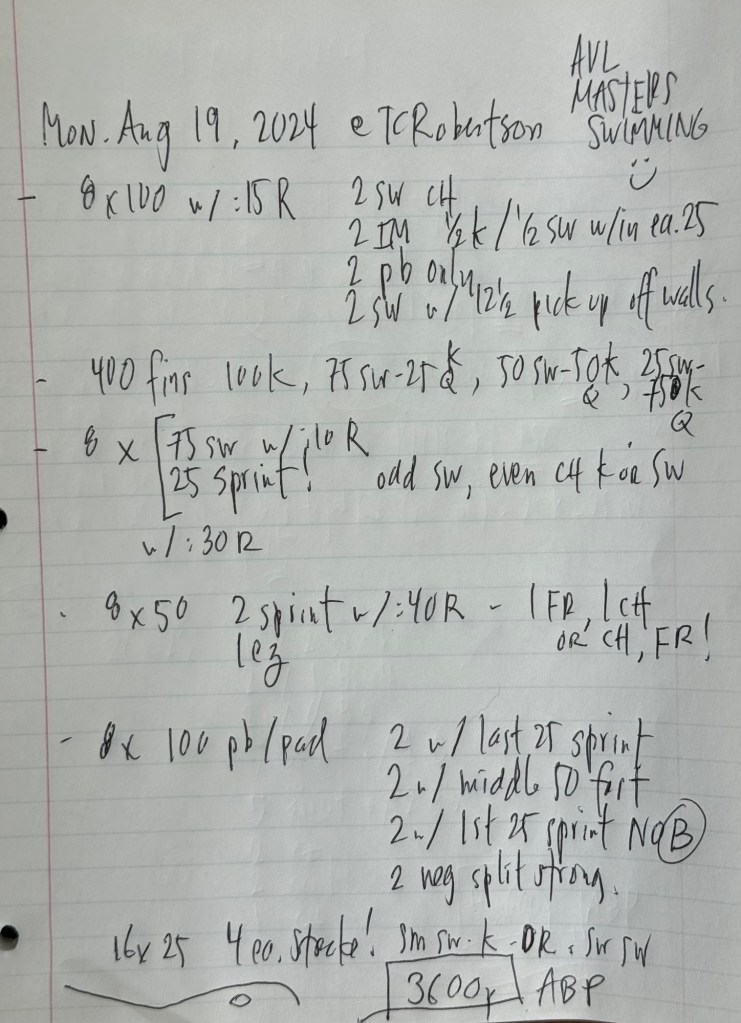 AVL
MASTERS
SWIMMING
Mon. Aug 19, 2024 @ TCRobertson
- 8x100 w/:15R 2 sw CH
2 IM ½k/½sw w/in ea. 25
2 pb only
2 sw w/ 12½ pick up off walls.
- 400 fins 100k, 75sw-25k, 50sw-50k, 25sw-
Q Q 75k
Q
- 8 x [75 sw w/:10R
25 sprint! odd sw, even CH k or sw
w/:30R
- 8x50 2 sprint w/:40R - 1 FR, 1 CH
1ez OR CH, FR!
- 8x 100 pb/pad 2 w/ last 25 sprint
2 w/ middle 50 fast
2 w/ 1st 25 sprint NO B
2 neg split strong.
16x25 4 ea. stroke! sm sw. k. DR. sw sw
3600y ABP